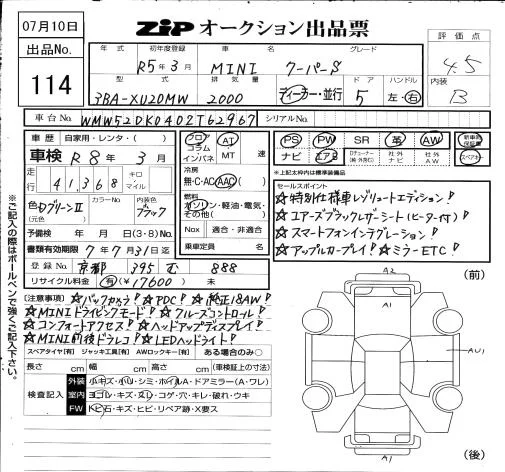 07月10日
ZiP オークション出品票
出品No.
114
年式 初年度登録 車名 グレード
R5年3月 MINI クーパーS
型式 排気量 ドア ハンドル
3BA-XU20MW 2000 ディーラー・並行 5 左・右
評価点
4.5
内装
B
車台No. WMW52DK0402T62967 シリアルNo.
車歴 自家用・レンタ・( )
車検 R8年3月
走行 41,368 キロ マイル
色 Dグリーン II (元色) カラーNo. 内装色 ブラック
予備検 年 月 日(3・8)No.
書類有効期限 7年7月31日迄
登録No. 京都 395 む 888
リサイクル料金 有(¥17600) 未
フロア コラム インパネ AT MT 速
冷房
無・C・AC・AAC
燃料
ガソリン・軽油・電気・その他( )
Nox 適合・非適合
乗車定員 名
PS PW SR 革 AW
ナビ エアB Dチューナー(地・外含C) 社外ナビ 社外AW
新車時保証書
スペアキー
※上記太枠内は標準装備品
セールスポイント
☆特別仕様車レゾリュートエディション!
☆エアーズブラックレザーシート(ヒーター付)!
☆スマートフォンインテグレーション!
☆アップルカープレイ!☆ミラーETC!
(注意事項) ☆バックカメラ!☆PDC!☆純正18AW!
☆MINIドライビングモード!☆クルーズコントロール!
☆コンフォートアクセス!☆ヘッドアップディスプレイ!
☆MINI前後ドラレコ!☆LEDヘッドライト!
スペアタイヤ[有] ジャッキ工具[有] AWロックキー[有] ある場合のみ○
長さ cm 幅 cm 高さ cm (車検証上の寸法)
検査記入
外装 小キズ・小U・シミ・ホイルA・ドアミラー(A・ワレ)
室内 ヨゴレ・キズ・スレ・コゲ・穴・キレ・破れ・ウキ
FW トビ石・キズ・ヒビ・リペア跡・X要ス
※ご記入の際はボールペンで強くご記入下さい。
(前)
A2
A1
AU1
A1
(後)